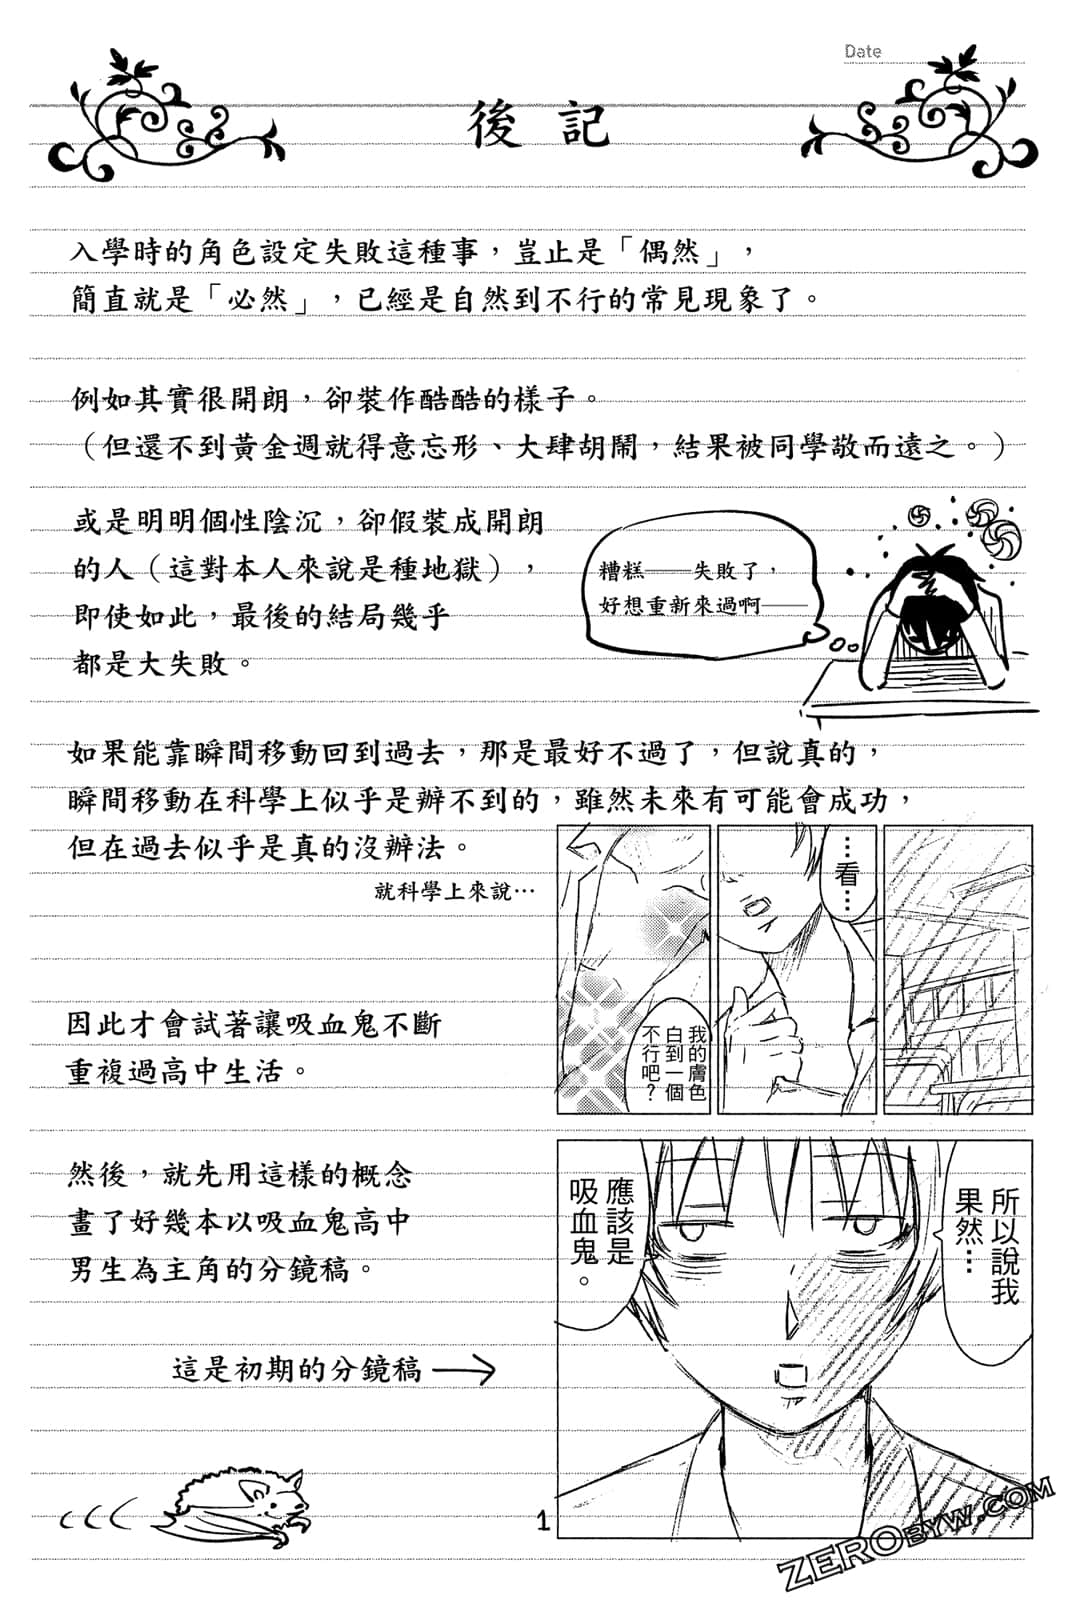 Date
後記
入學時的角色設定失敗這種事，豈止是「偶然」，
簡直就是「必然」，已經是自然到不行的常見現象了。
例如其實很開朗，卻裝作酷酷的樣子。
（但還不到黃金週就得意忘形、大肆胡鬧，結果被同學敬而遠之。）
或是明明個性陰沉，卻假裝成開朗
的人（這對本人來說是種地獄），
即使如此，最後的結局幾乎
都是大失敗。
糟糕——失敗了，
好想重新來過啊——
如果能靠瞬間移動回到過去，那是最好不過了，但說真的，
瞬間移動在科學上似乎是辦不到的，雖然未來有可能會成功，
但在過去似乎是真的沒辦法。
就科學上來說…
…看…
我的膚色
白到一個
不行吧？
因此才會試著讓吸血鬼不斷
重複過高中生活。
然後，就先用這樣的概念
畫了好幾本以吸血鬼高中
男生為主角的分鏡稿。
所以說我
果然…
應該是
吸血鬼。
這是初期的分鏡稿
1
ZEROBYW.COM